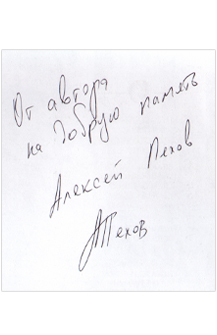 От автора
на добрую память
Алексей Пехов
АПехов